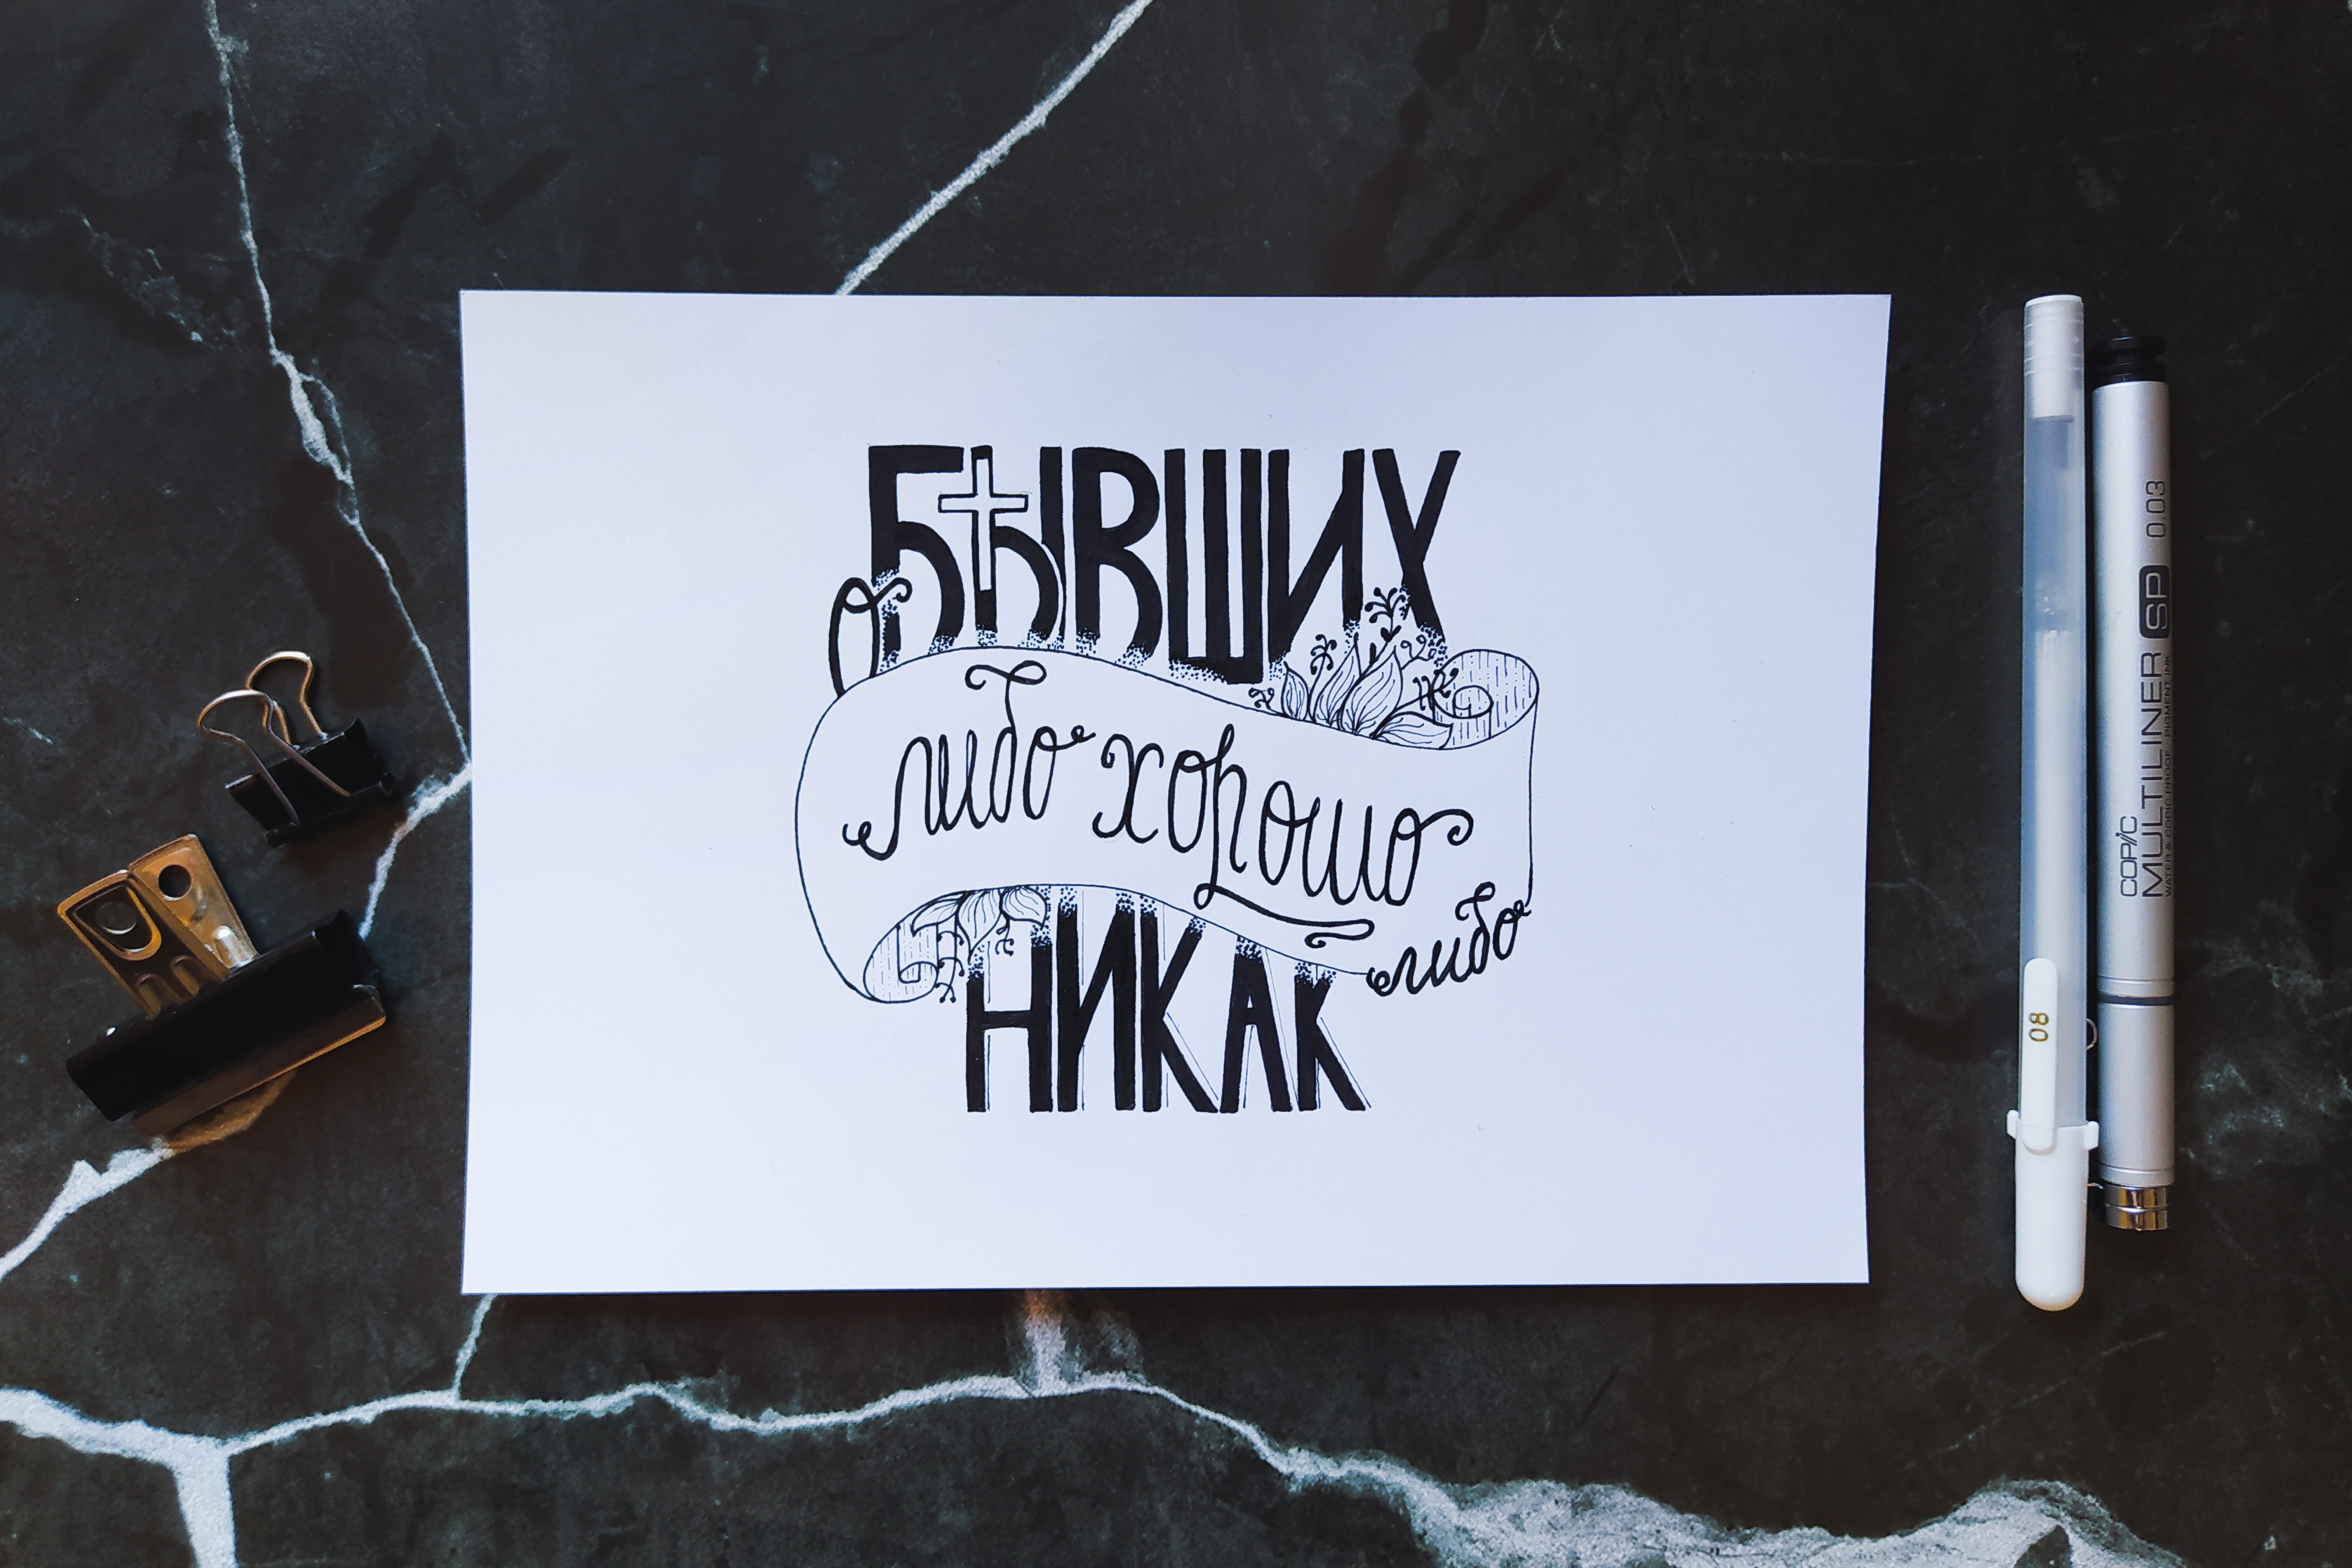 о БЫВШИХ
либо хорошо
либо
НИКАК
COPIC
MULTILINER SP 0.03
WATER & COPIC PROOF PIGMENT INK
08